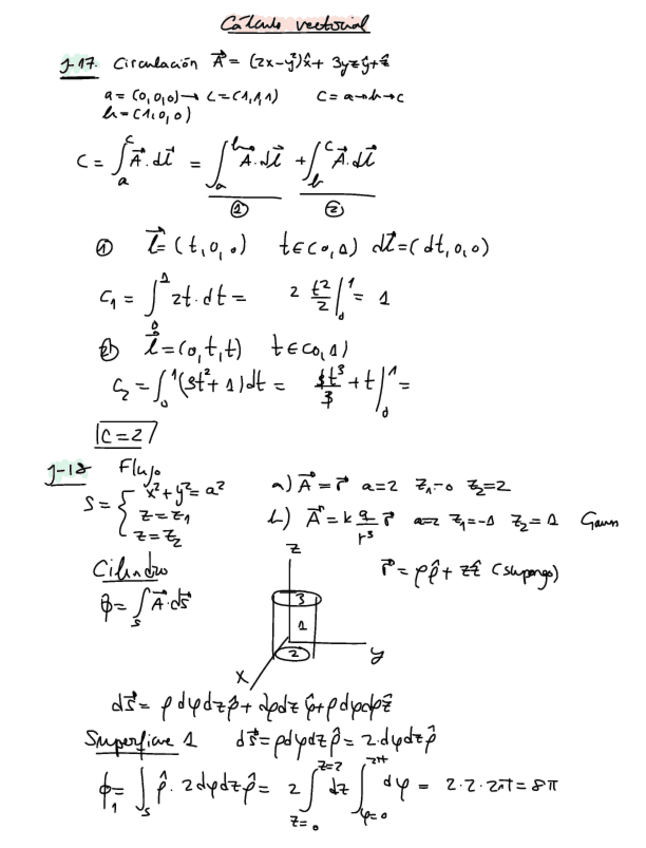 Cálculo vectorial
J-17. Circulación A⃗ = (2x-y²)x̂ + 3yzŷ + ẑ
a = (0,0,0) → c = (1,1,1) C = a→b→c
b = (1,0,0)
C = ∫ₐᶜ A⃗·dl⃗ = ∫ₐᵇ A⃗·dl⃗ + ∫_b^c A⃗·dl⃗
① ②
① l⃗ = (t,0,0) t∈(0,1) dl⃗ = (dt,0,0)
C₁ = ∫₀¹ 2t·dt = 2 t²/2 |₀¹ = 1
② l⃗ = (0,t,t) t∈(0,1)
C₂ = ∫₀¹ (3t²+1)dt = 3t³/3 + t |₀¹ =
C = 2
J-18 Flujo
S = { x²+y² = a² a) A⃗ = r⃗ a=2 z₁=0 z₂=2
z = z₁ b) A⃗ = k q/r³ r⃗ a=2 z₁=-1 z₂=1 Gauss
z = z₂
Cilindro r⃗ = ρρ̂ + zẑ (supongo)
ϕ = ∫_S A⃗·ds⃗
z
3
1
2
x y
ds⃗ = ρdφdzρ̂ + dρdzφ̂ + ρdφdρẑ
Superficie 1 ds⃗ = ρdφdzρ̂ = 2·dφdzρ̂
ϕ₁ = ∫_S ρ̂·2dφdzρ̂ = 2∫_{z=0}^{z=2} dz ∫_{φ=0}^{2π} dφ = 2·2·2π = 8π